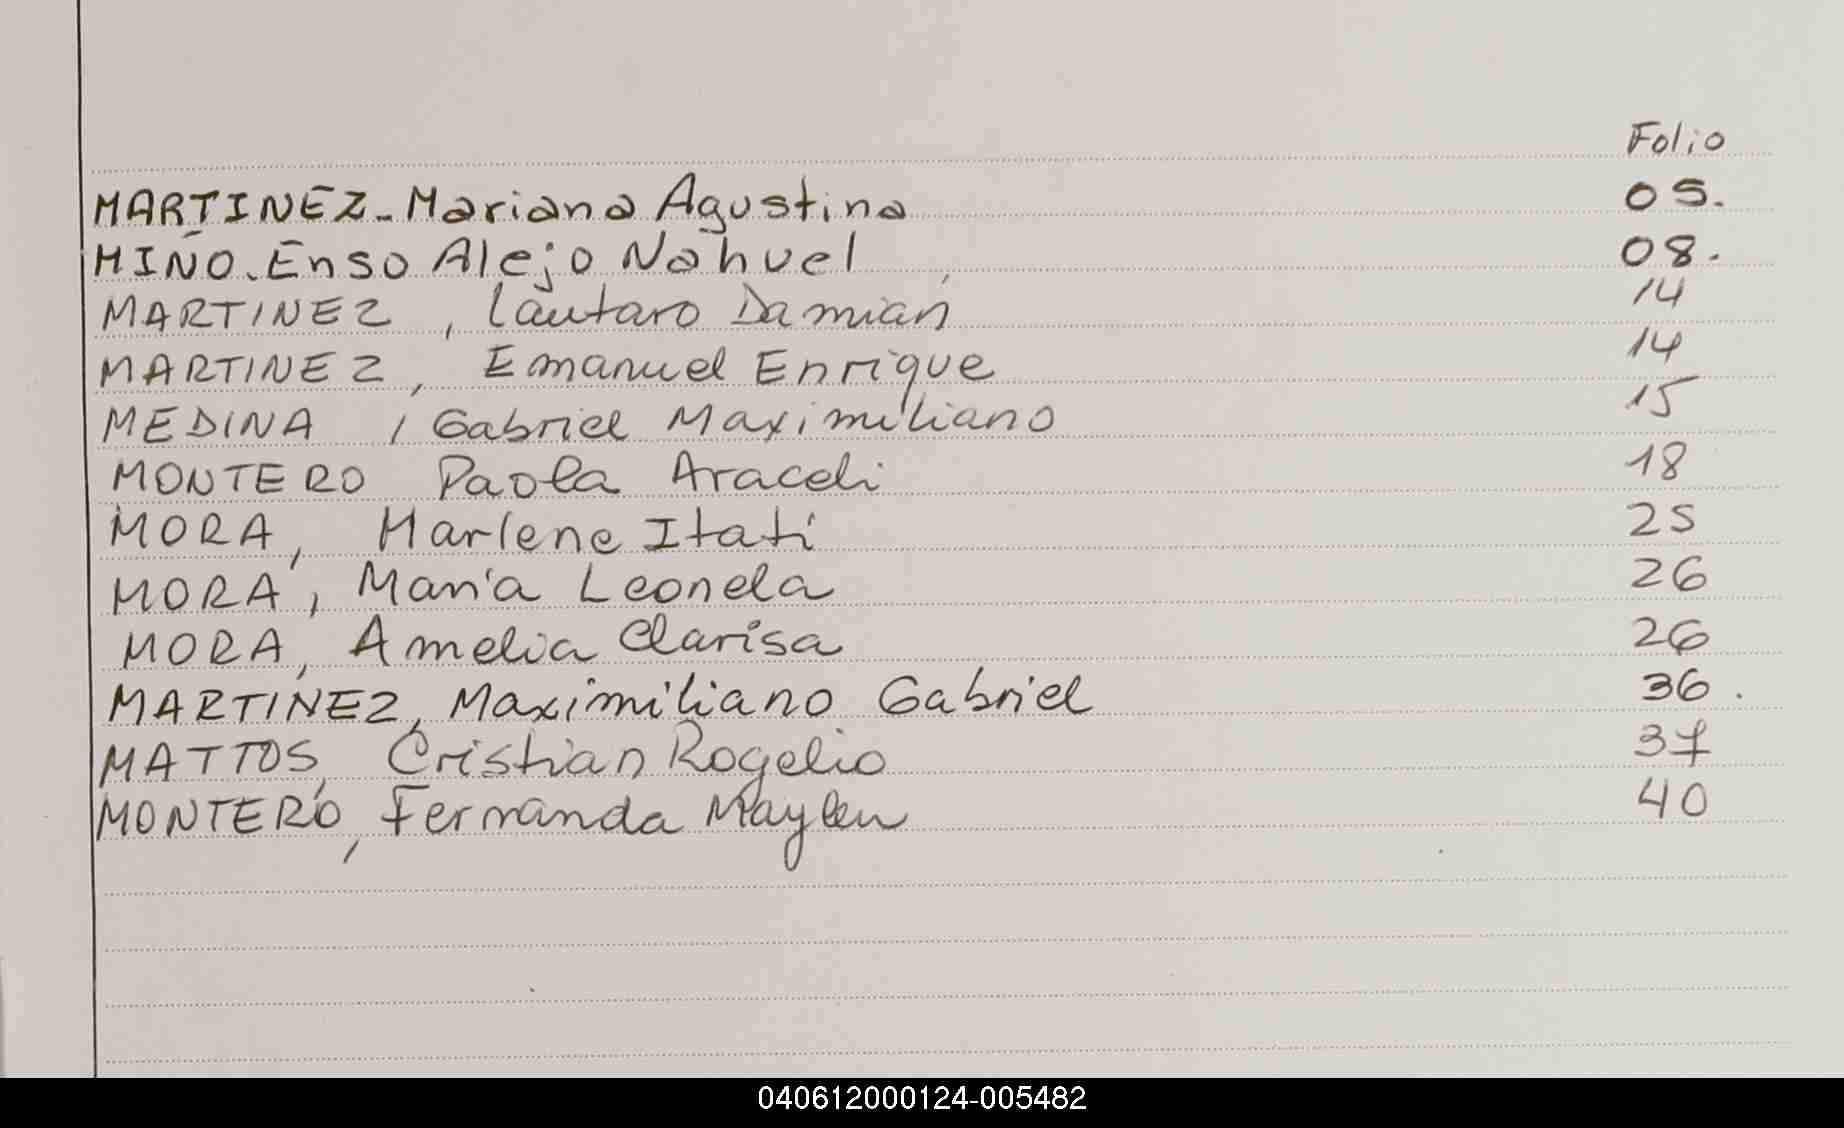 Folio
MARTINEZ - Mariana Agustina 05.
MIÑO. Enso Alejo Nahuel 08.
MARTINEZ, Lautaro Damián 14
MARTINEZ, Emanuel Enrique 14
MEDINA, Gabriel Maximiliano 15
MONTERO Paola Araceli 18
MORA, Marlene Itatí 25
MORA, María Leonela 26
MORA, Amelia Clarisa 26
MARTINEZ, Maximiliano Gabriel 36.
MATTOS, Cristian Rogelio 37
MONTERO, Fernanda Maylen 40
040612000124-005482